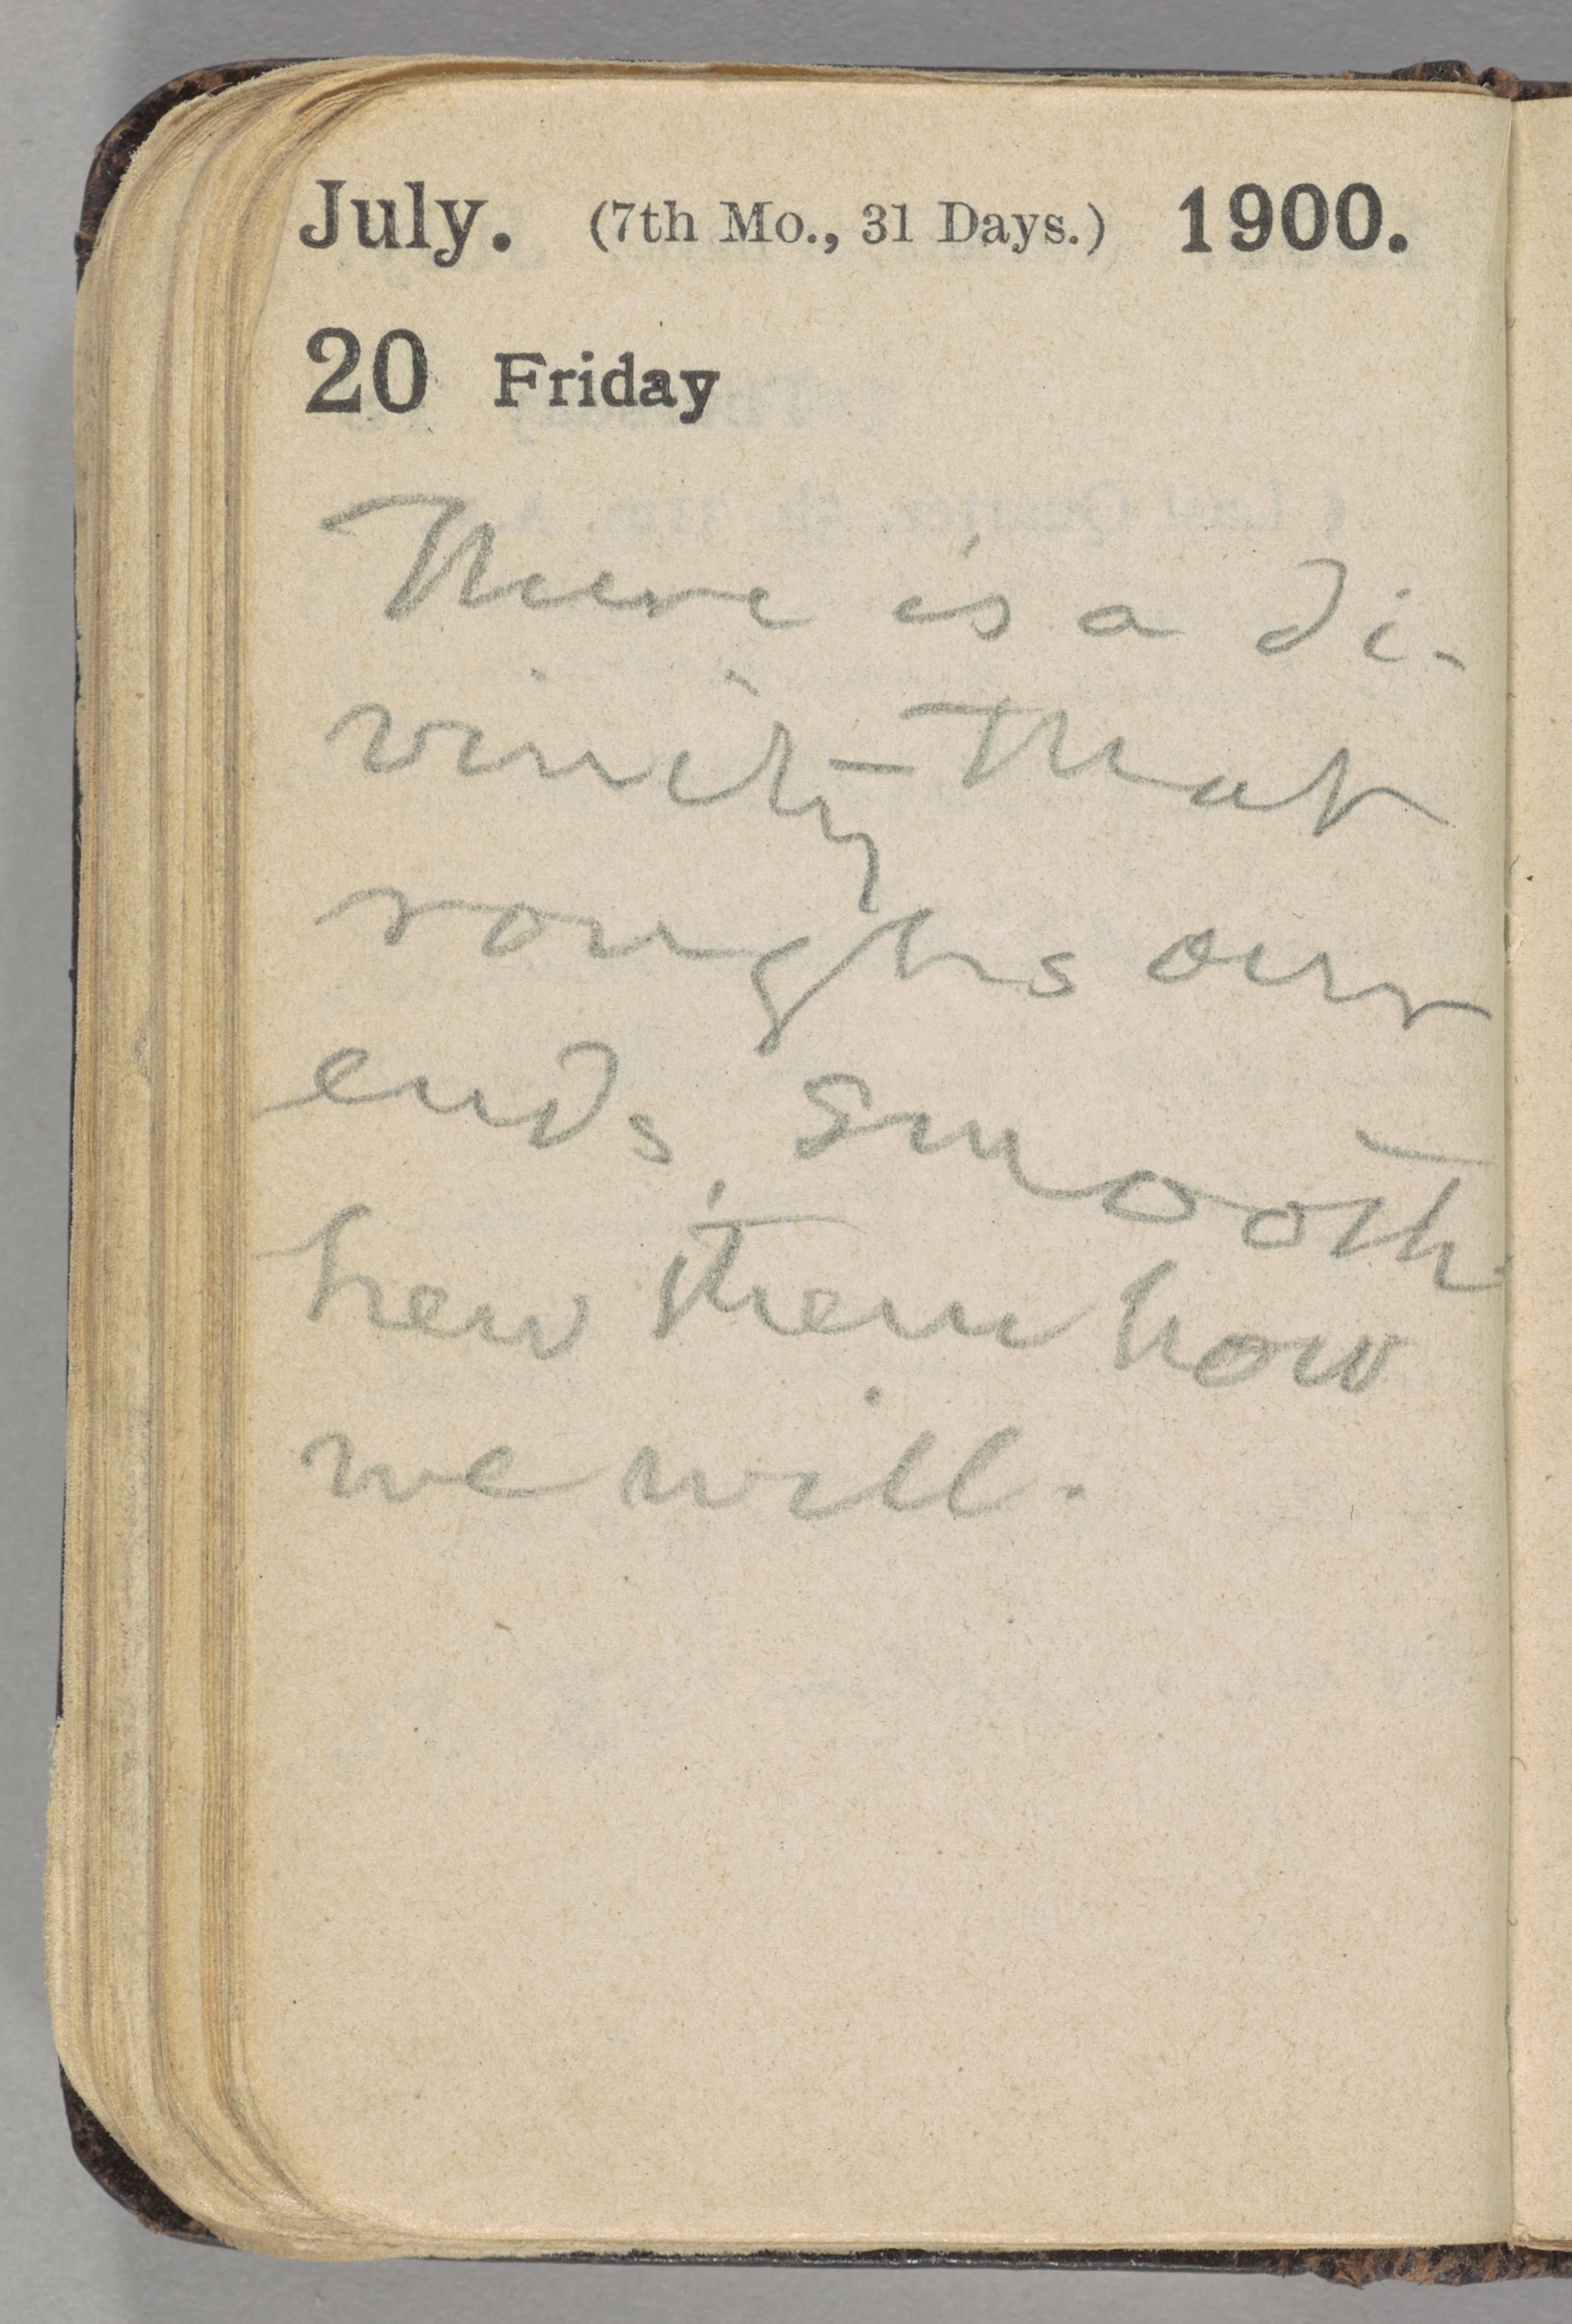 July. (7th Mo., 31 Days.) 1900.
20 Friday
There is a di-
vinity that
roughs our
ends, smooth
hew them how
we will.